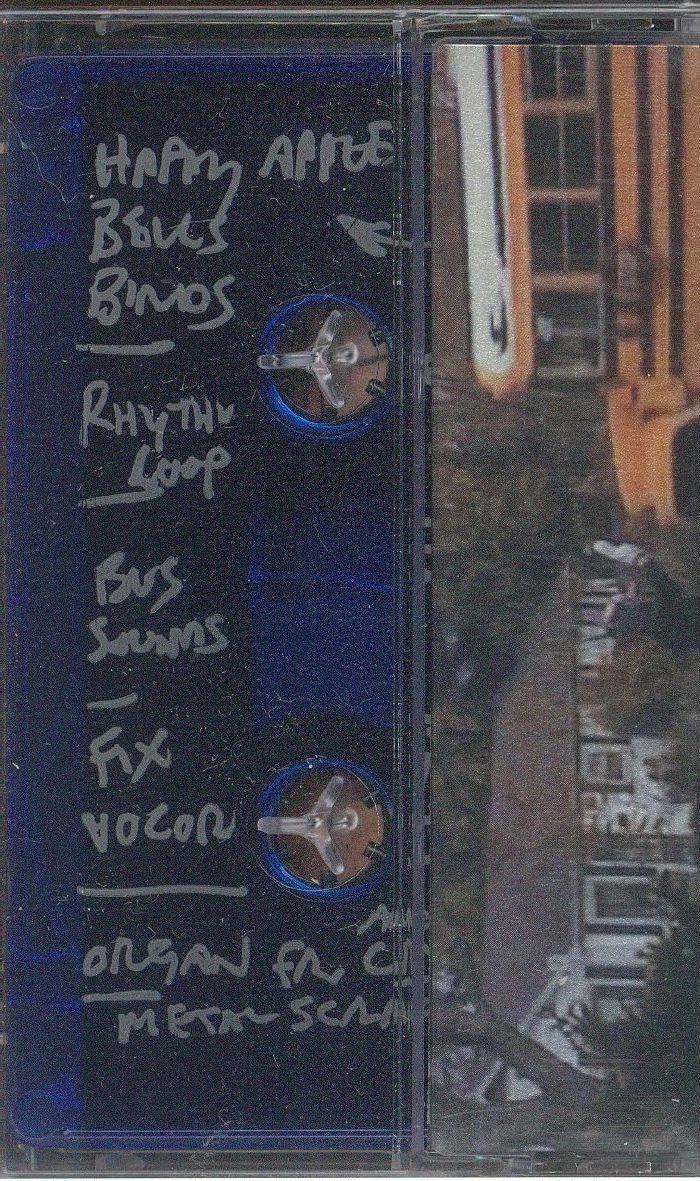 HAPPY APPLE
BELLS
BIRDS
RHYTHM
LOOP
BUS
SOUNDS
FIX
VOCOR
ORGAN
METAL